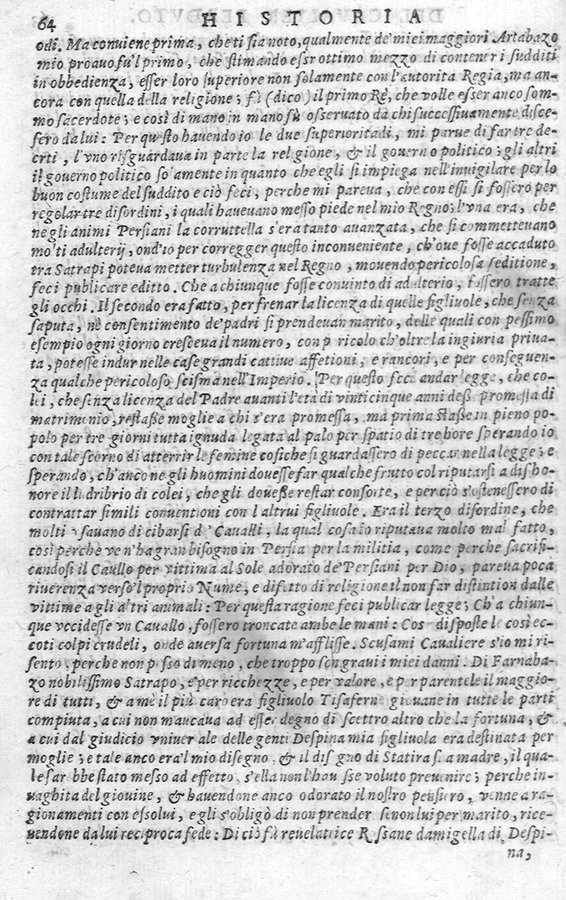 64 HISTORIA
odi. Ma conuiene prima, che ti sia noto, qualmente de' miei maggiori Artabazo
mio proauo fù'l primo, che stimando esser ottimo mezzo di contener i sudditi
in obbedienza, esser loro superiore non solamente con l'autorita Regia, ma an-
cora con quella della religione; fù (dico) il primo Rè, che volle esser anco som-
mo sacerdote; e così di mano in mano fù osseruato da chi successiuamente disce-
sero da lui: Per questo hauendo io le due superioritadi, mi parue di far tre de-
creti, l'vno risguardaua in parte la religione, & il gouerno politico; gli altri
il gouerno politico solamente in quanto che egli si impiega nell'inuigilare per lo
buon costume del suddito e ciò feci, perche mi pareua, che con essi si fossero per
regolar tre disordini, i quali haueuano messo piede nel mio Regno; l'vna era, che
negli animi Persiani la corruttella s'era tanto auanzata, che si commetteuano
mo'ti adulterij, ond'io per corregger questo inconueniente, ch'oue fosse accaduto
tra Satrapi poteua metter turbulenza nel Regno, mouendo pericolosa seditione,
feci publicare editto. Che a chiunque fosse conuinto di adulterio, fossero tratte
gli occhi. Il secondo era fatto, per frenar la licenza di quelle figliuole, che senza
saputa, nè consentimento de' padri si prendeuan marito, delle quali con pessimo
esempio ogni giorno cresceua il numero, con p ricolo ch'oltre la ingiuria priua-
ta, potesse indur nelle case grandi cattiue affetioni, e rancori, e per conseguen-
za qualche pericoloso scisma nell'Imperio. Per questo feci andar legge, che co-
lei, che senza licenza del Padre auanti l'età di vinticinque anni desse promessa di
matrimonio, restasse moglie a chi s'era promessa, ma prima stasse in pieno po-
polo per tre giorni tutta ignuda legata al palo per spatio di tre hore sperando io
con tale scorno di atterrir le femine cosiche si guardassero di peccar nella legge; e
sperando, ch'anco negli huomini douesse far qualche frutto col riputarsi a disho-
nore il ludribrio di colei, che gli douesse restar consorte, e perciò s'ostenessero di
contrattar simili conuentioni con l'altrui figliuole. Era il terzo disordine, che
molti vsauano di cibarsi d' Caualli, la qual cosa io riputaua molto mal fatto,
così perchè ve n'ha gran bisogno in Persia per la militia, come perche sacrifi-
candosi il Cauallo per vittima al Sole adorato de' Persiani per Dio, pareua poca
riuerenza verso'l proprio Nume, e difetto di religione il non far distintion dalle
vittime agli altri animali: Per questa ragione feci publicar legge; Ch'a chiun-
que vccidesse vn Cauallo, fossero troncate ambe le mani: Cos disposte le così ec-
coti colpi crudeli, onde auersa fortuna m'afflisse. Scusami Caualiere s'io mi ri-
sento, perche non posso di meno, che troppo son graui i miei danni. Di Farnaba-
zo nobilissimo Satrapo, e per ricchezze, e per valore, e per parentele il maggio-
re di tutti, & a me il più caro era figliuolo Tisaferne giouane in tutte le parti
compiuta, a cui non mancaua ad esser degno di scettro altro che la fortuna, &
a cui dal giudicio vniuer ale delle genti Despina mia figliuola era destinata per
moglie; e tale anco era'l mio disegno & il dis gno di Statira s. a madre, il qua-
le sar bbe stato messo ad effetto, s'ella non l'hau sse voluto preuenire; perche in-
uaghita del giouine, & hauendone anco odorato il nostro pensiero, venne a ra-
gionamenti con essolui, e gli s'obligò di non prender se non lui per marito, rice-
uendone da lui reciproca fede: Di ciò fù reuelatrice R ssane damigella di Despi-
na,